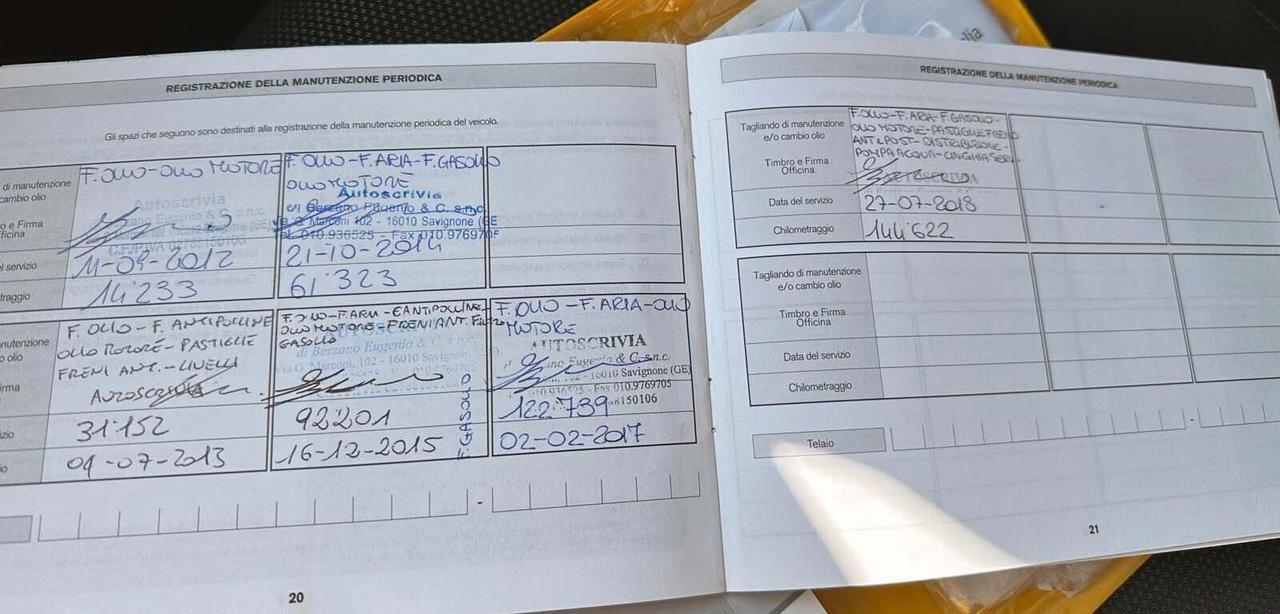 REGISTRAZIONE DELLA MANUTENZIONE PERIODICA
Gli spazi che seguono sono destinati alla registrazione della manutenzione periodica del veicolo.
di manutenzione
cambio olio
o e Firma
fficina
el servizio
traggio
F. OLIO-OLIO MOTORE
Autoscrivia
Berzano Eugenio & C. s.n.c.
11-09-2012
14'233
F. OLIO-F.ARIA-F.GASOLIO
OLIO MOTORE
Autoscrivia
di Berzano Eugenio & C. s.n.c.
Via G. Marconi 102 - 16010 Savignone (GE
Tel. 010.936525 - Fax 010.976970
21-10-2014
61'323
nutenzione
o olio
irma
zio
io
F. OLIO-F. ANTIPOLLINE
OLIO MOTORE-PASTIGLIE
FRENI ANT.-LIVELLI
AUTOSCRIVIA
31'152
09-07-2013
F. OLIO-F.ARIA-E ANTIPOLLINE
OLIO MOTORE-FRENI ANT. FILTRO
GASOLIO
AUTOSCRIVIA
di Berzano Eugenio & C s.n.c.
Via G. Marconi, 102 - 16010 Savignone (GE)
92201
16-12-2015
F. OLIO-F. ARIA-OLIO
MOTORE
F.GASOLIO
AUTOSCRIVIA
Eugenio & C. s.n.c.
102 - 16010 Savignone (GE)
010.936525 - Fax 010.9769705
150106
122'739
02-02-2017
20
REGISTRAZIONE DELLA MANUTENZIONE PERIODICA
Tagliando di manutenzione
e/o cambio olio
Timbro e Firma
Officina
Data del servizio
Chilometraggio
F.OLIO-F.ARIA-F.GASOLIO-
OLIO MOTORE-PASTIGLIE FRENO
ANT E POST-DISTRIBUZIONE-
POMPA ACQUA-CINGHIA SERV.
AUTOSCRIVIA
27-07-2018
144'622
Tagliando di manutenzione
e/o cambio olio
Timbro e Firma
Officina
Data del servizio
Chilometraggio
Telaio
21